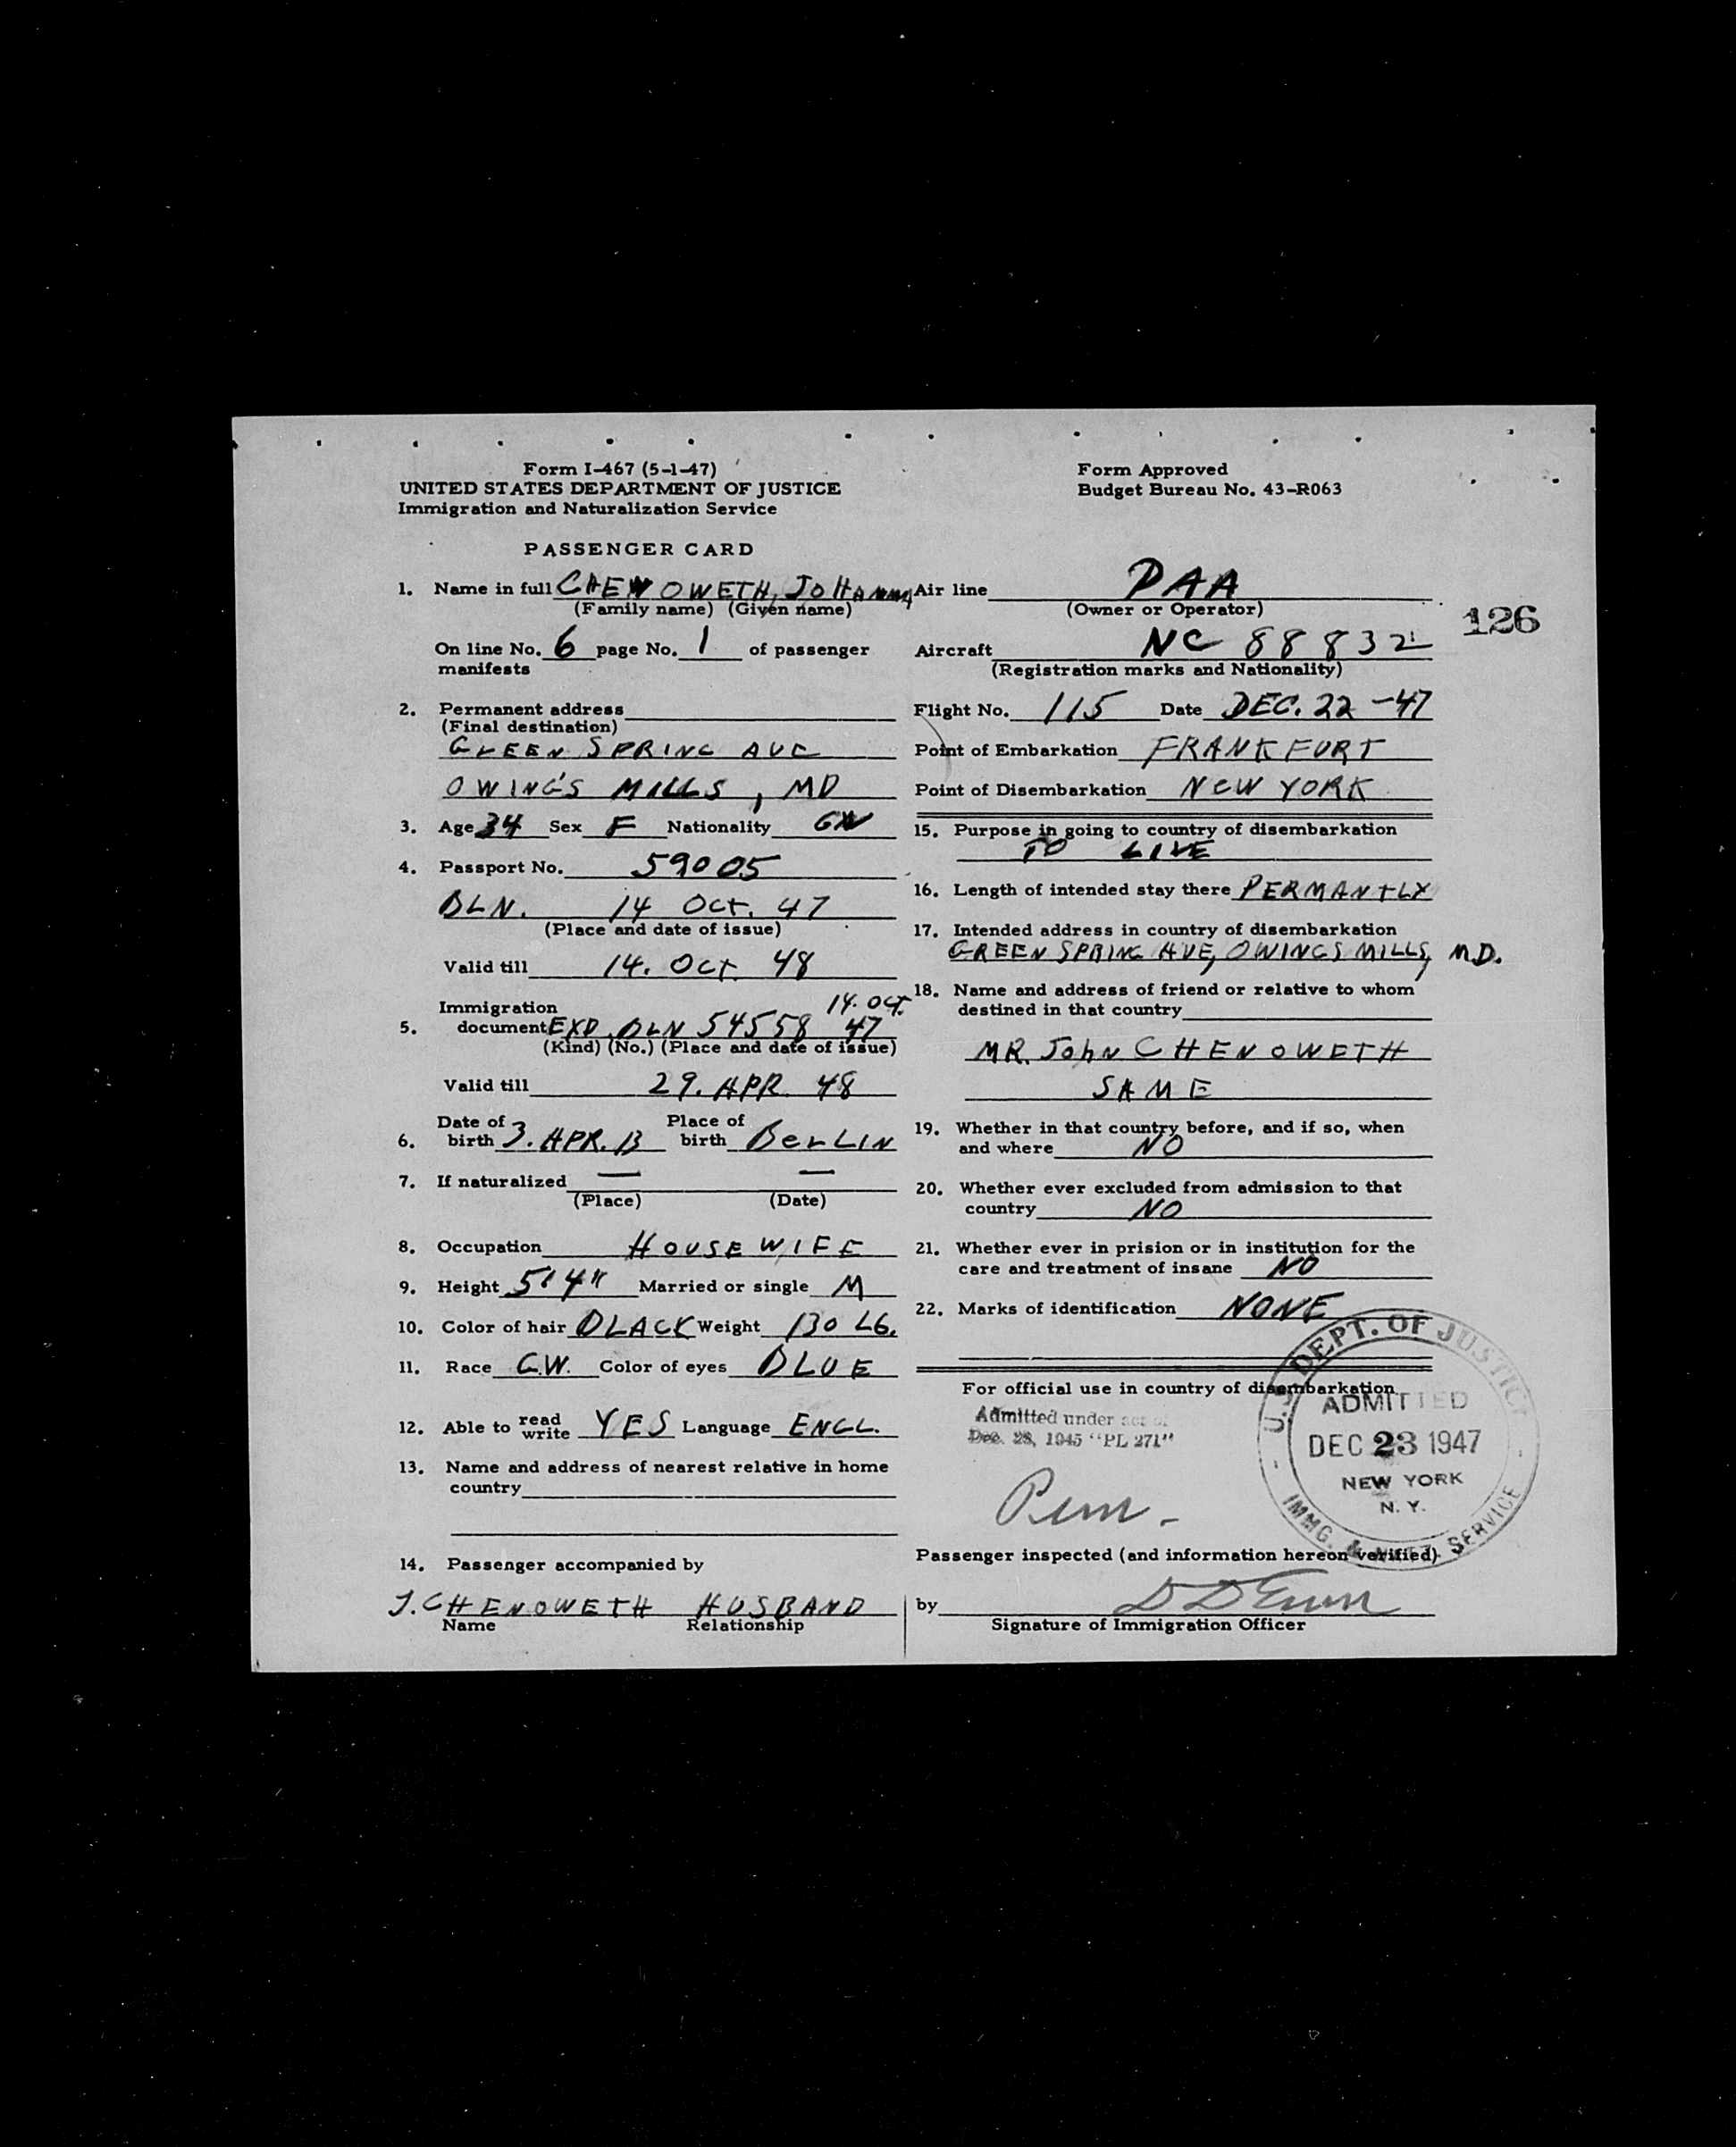 Form I-467 (5-1-47)
UNITED STATES DEPARTMENT OF JUSTICE
Immigration and Naturalization Service
Form Approved
Budget Bureau No. 43-R063
PASSENGER CARD
126
1. Name in full CHENOWETH, JOHANNA
(Family name) (Given name)
On line No. 6 page No. 1 of passenger
manifests
2. Permanent address
(Final destination)
GREEN SPRING AVE
OWING'S MILLS, MD
3. Age 34 Sex F Nationality GN
4. Passport No. 59005
BLN. 14 OCT. 47
(Place and date of issue)
Valid till 14. OCT. 48
Immigration 14. OCT.
5. document EXD. BLN 54558 47
(Kind) (No.) (Place and date of issue)
Valid till 29. APR. 48
Date of Place of
6. birth 3. APR. 13 birth BERLIN
7. If naturalized — —
(Place) (Date)
8. Occupation HOUSEWIFE
9. Height 5'4" Married or single M
10. Color of hair BLACK Weight 130 LB.
11. Race G.W. Color of eyes BLUE
12. Able to read write YES Language ENGL.
13. Name and address of nearest relative in home
country
14. Passenger accompanied by
J. CHENOWETH HUSBAND
Name Relationship
Air line PAA
(Owner or Operator)
Aircraft NC 88832
(Registration marks and Nationality)
Flight No. 115 Date DEC. 22 -47
Point of Embarkation FRANKFURT
Point of Disembarkation NEW YORK
15. Purpose in going to country of disembarkation
TO LIVE
16. Length of intended stay there PERMANTLY
17. Intended address in country of disembarkation
GREEN SPRING AVE, OWINGS MILLS, M.D.
18. Name and address of friend or relative to whom
destined in that country
MR. JOHN CHENOWETH
SAME
19. Whether in that country before, and if so, when
and where NO
20. Whether ever excluded from admission to that
country NO
21. Whether ever in prision or in institution for the
care and treatment of insane NO
22. Marks of identification NONE
For official use in country of disembarkation
Admitted under act of
Dec. 28, 1945 "PL 271"
U.S. DEPT. OF JUSTICE
ADMITTED
DEC 23 1947
NEW YORK
N. Y.
IMMG. & NATZ. SERVICE
Passenger inspected (and information hereon verified)
by
Signature of Immigration Officer